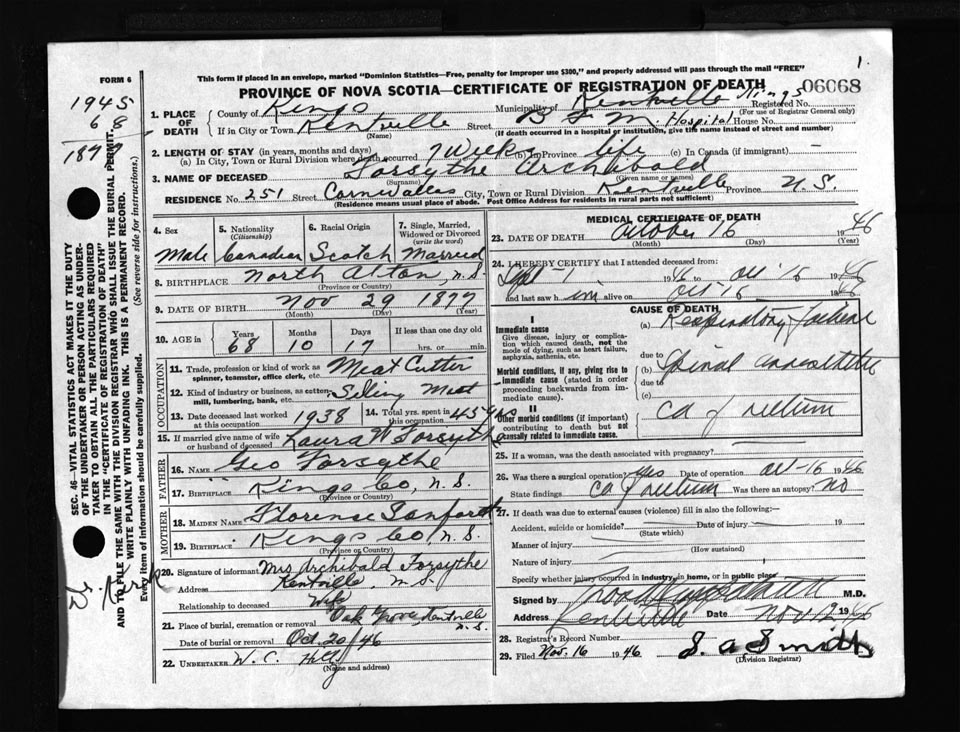 1.
FORM 6
This form if placed in an envelope, marked "Dominion Statistics—Free, penalty for improper use $300," and properly addressed will pass through the mail "FREE"
PROVINCE OF NOVA SCOTIA—CERTIFICATE OF REGISTRATION OF DEATH 06068
1945
6 8
1877
1. PLACE OF DEATH County of Kings Municipality of Kentville Kings Registered No.
(For use of Registrar General only)
If in City or Town Kentville Street B F M Hospital House No.
(Name) (If death occurred in a hospital or institution, give the name instead of street and number)
2. LENGTH OF STAY (in years, months and days)
(a) In City, Town or Rural Division where death occurred 7 Weeks (b) In Province life (c) In Canada (if immigrant) —
3. NAME OF DECEASED Forsythe Archibald
(Surname) (Given name or names)
RESIDENCE No. 251 Street Cornwallis City, Town or Rural Division Kentville Province N.S.
(Residence means usual place of abode. Post Office Address for residents in rural parts not sufficient)
4. Sex Male
5. Nationality (Citizenship) Canadian
6. Racial Origin Scotch
7. Single, Married, Widowed or Divorced (write the word) Married
8. BIRTHPLACE North Alton, N.S.
(Province or Country)
9. DATE OF BIRTH Nov 29 1877
(Month) (Day) (Year)
10. AGE in Years 68 Months 10 Days 17 If less than one day
hrs. or min.
OCCUPATION
11. Trade, profession or kind of work as spinner, teamster, office clerk, etc. Meat Cutter
12. Kind of industry or business, as cotton mill, lumbering, bank, etc. Selling Meat
13. Date deceased last worked at this occupation 1938
14. Total yrs. spent in this occupation 45 yrs
15. If married give name of wife or husband of deceased Laura W Forsythe
FATHER
16. NAME Geo Forsythe
17. BIRTHPLACE Kings Co, N.S.
(Province or Country)
MOTHER
18. MAIDEN NAME Florence Sanford
19. BIRTHPLACE Kings Co, N.S.
(Province or Country)
20. Signature of informant Mrs Archibald Forsythe
Address Kentville, N.S.
Relationship to deceased Wife
21. Place of burial, cremation or removal Oak Grove, Kentville N.S.
Date of burial or removal Oct. 20/46
22. UNDERTAKER W. C.
(Name and address)
MEDICAL CERTIFICATE OF DEATH
23. DATE OF DEATH October 16 1946
(Month) (Day) (Year)
24. I HEREBY CERTIFY that I attended deceased from:
Sept - 1 1946 to Oct 16 1946
and last saw him alive on Oct 16 1946
CAUSE OF DEATH
I
Immediate cause
Give disease, injury or complication which caused death, not the mode of dying, such as heart failure, asphyxia, asthenia, etc.
(a) Respiratory failure
due to
Morbid conditions, if any, giving rise to immediate cause (stated in order proceeding backwards from immediate cause).
(b) Spinal anaesthetic
due to
(c)
II
Other morbid conditions (if important) contributing to death but not causally related to immediate cause.
Ca of rectum
25. If a woman, was the death associated with pregnancy?
26. Was there a surgical operation? yes Date of operation Oct-16 1946
State findings Ca of rectum Was there an autopsy? no
27. If death was due to external causes (violence) fill in also the following:
Accident, suicide or homicide? Date of injury 19
(State which)
Manner of injury
(How sustained)
Nature of injury
Specify whether injury occurred in industry, in home, or in public place
Signed by M.D.
Address Kentville Date Nov 12 1946
28. Registrar's Record Number
29. Filed Nov. 16 1946 S. A. Smith
(Division Registrar)
SEC. 46—VITAL STATISTICS ACT MAKES IT THE DUTY
OF THE UNDERTAKER OR PERSON ACTING AS UNDER-
TAKER TO OBTAIN ALL THE PARTICULARS REQUIRED
IN THE "CERTIFICATE OF REGISTRATION OF DEATH"
AND TO FILE THE SAME WITH THE DIVISION REGISTRAR WHO SHALL ISSUE THE BURIAL PERMIT.
WRITE PLAINLY WITH UNFADING INK. THIS IS A PERMANENT RECORD.
Every item of information should be carefully supplied. (See reverse side for instructions.)
Dr.